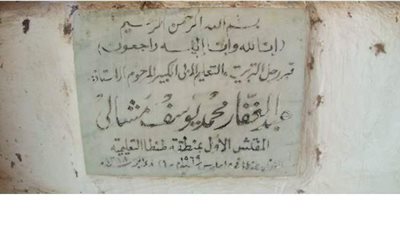 بسم الله الرحمن الرحيم
(إنا لله وإنا إليه راجعون)
قبر رجل التربية والتعليم المربى الكبير المرحوم الأستاذ
عبد الغفار محمد يوسف مشالى
المفتش الأول بمنطقة طنطا التعليمية
مارس ١٩٦٩